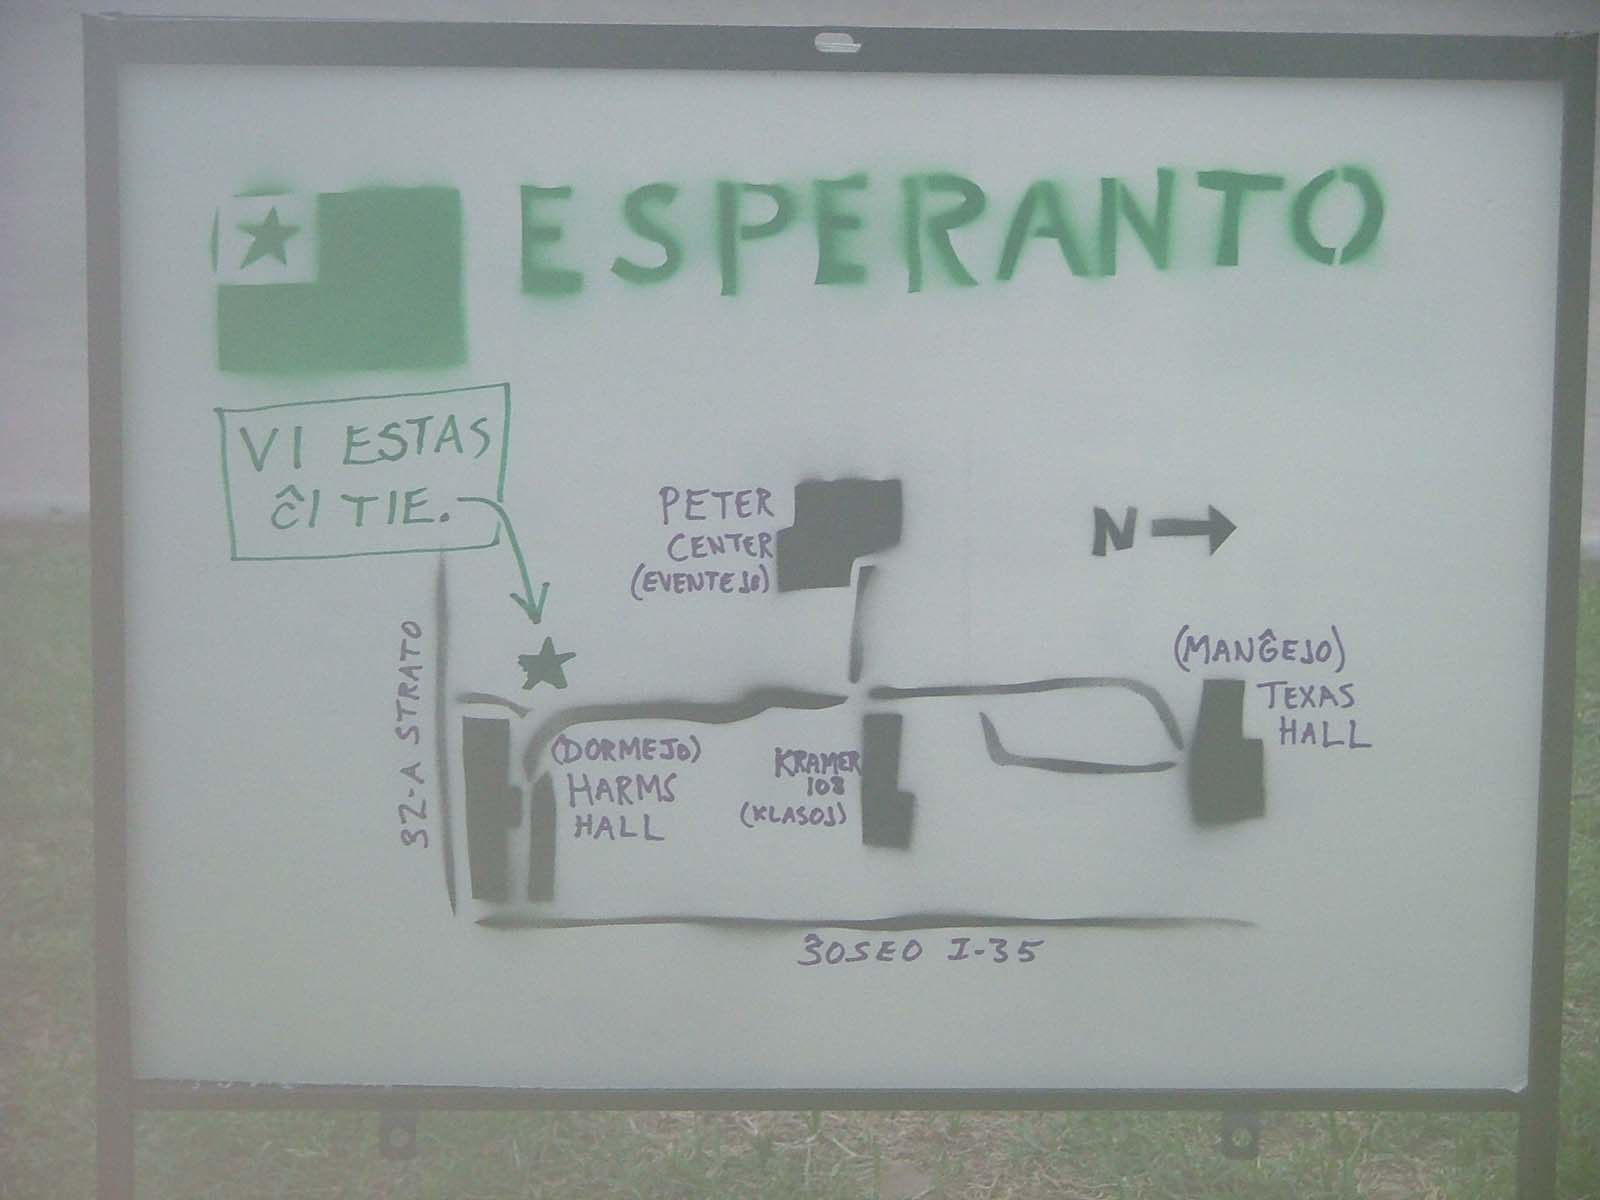 ESPERANTO
VI ESTAS
ĈI TIE.
PETER
CENTER
(EVENTEJO)
N
32-A STRATO
(MANĜEJO)
TEXAS
HALL
(DORMEJO)
HARMS
HALL
KRAMER
108
(KLASOJ)
ŜOSEO I-35